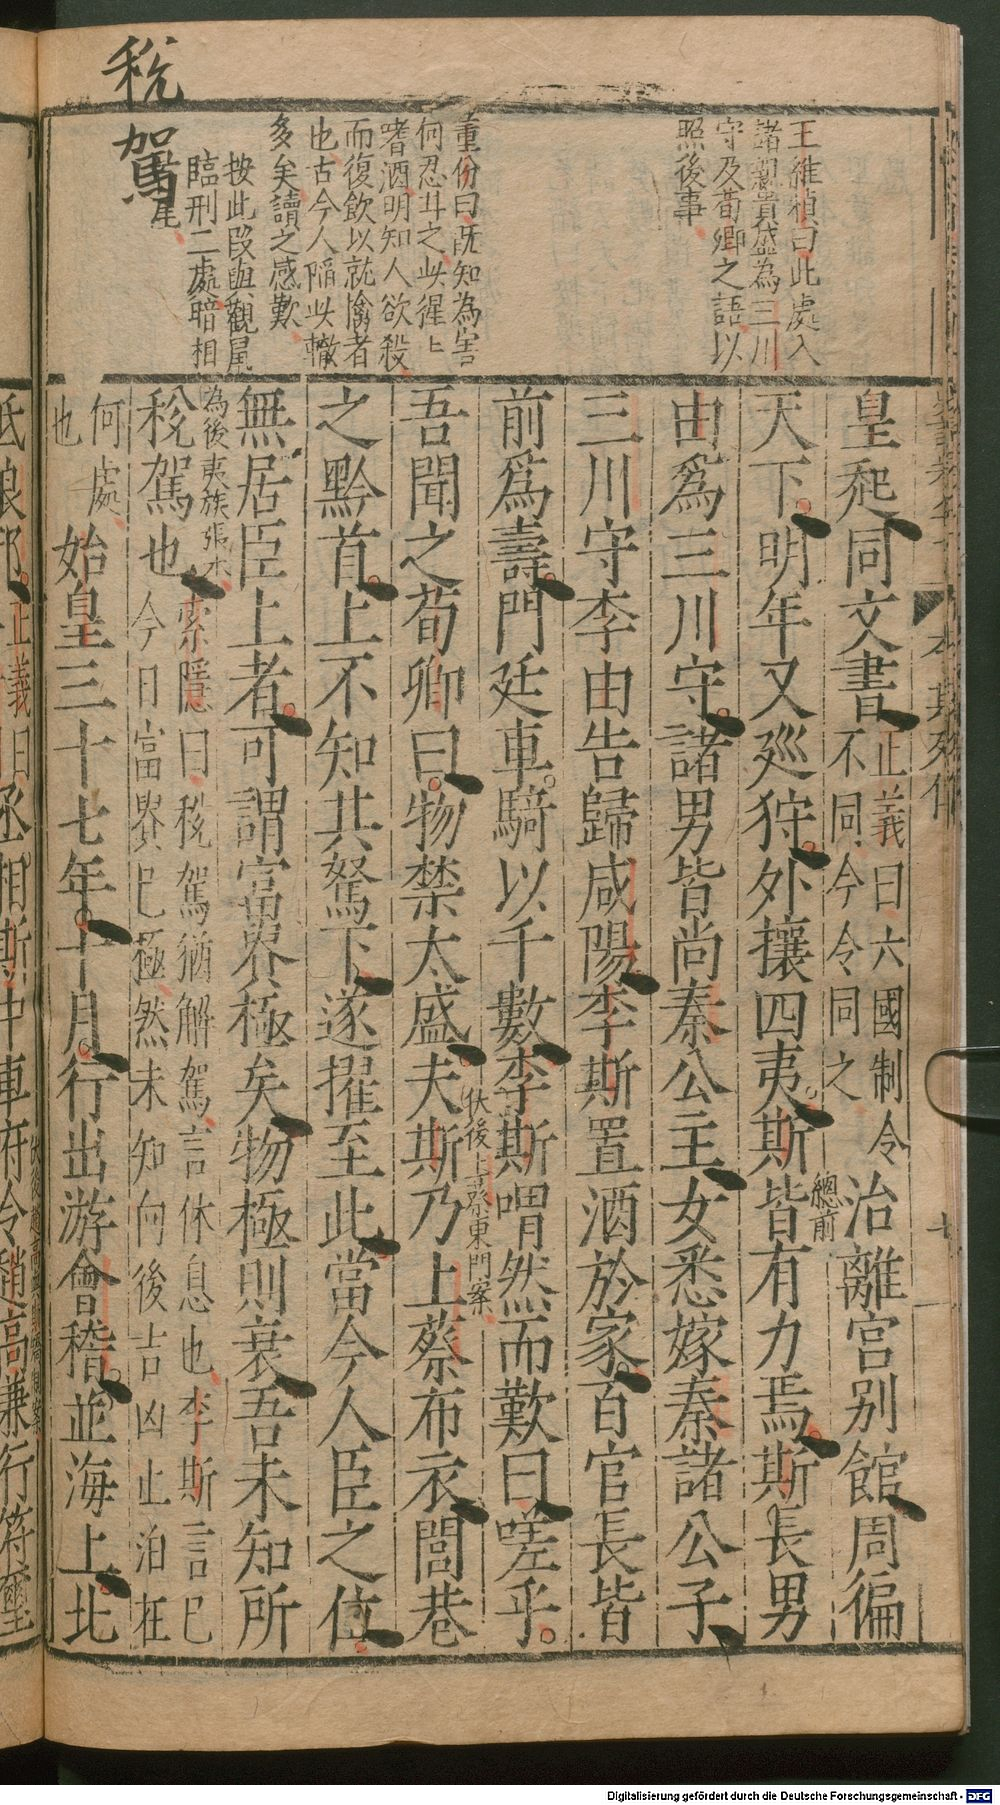 稅駕
王維楨曰此處入
諸親貴盛為三川
守及荀卿之語以
照後事
董份曰既知為害
何忍斗之此猩〻
嗜酒明知人欲殺
而復飲以就擒者
也古今人陷此轍
多矣讀之感歎
按此段與觀
臨刑二處暗相
為後夷族張本
皇起同文書
正義曰六國制令
不同今令同之
治離宮別館周徧
天下明年又廵狩外攘四夷斯皆有力焉斯長男
總前
由爲三川守諸男皆尚秦公主女悉嫁秦諸公子
三川守李由告歸咸陽李斯置酒於家百官長皆
前爲壽門廷車騎以千數李斯喟然而歎曰嗟乎
吾聞之荀卿曰物禁太盛夫斯乃上蔡布衣閭巷
伏後上蔡東門案
之黔首上不知其駑下遂擢至此當今人臣之位
無居臣上者可謂富貴極矣物極則衰吾未知所
稅駕也
索隱曰稅駕猶解駕言休息也李斯言已
今日富貴已極然未知向後吉凶止泊在
何處
也
始皇三十七年十月行出游會稽並海上北
正義曰
丞相斯中車府令趙高兼行符璽
李斯列傳
Digitalisierung gefördert durch die Deutsche Forschungsgemeinschaft - DFG